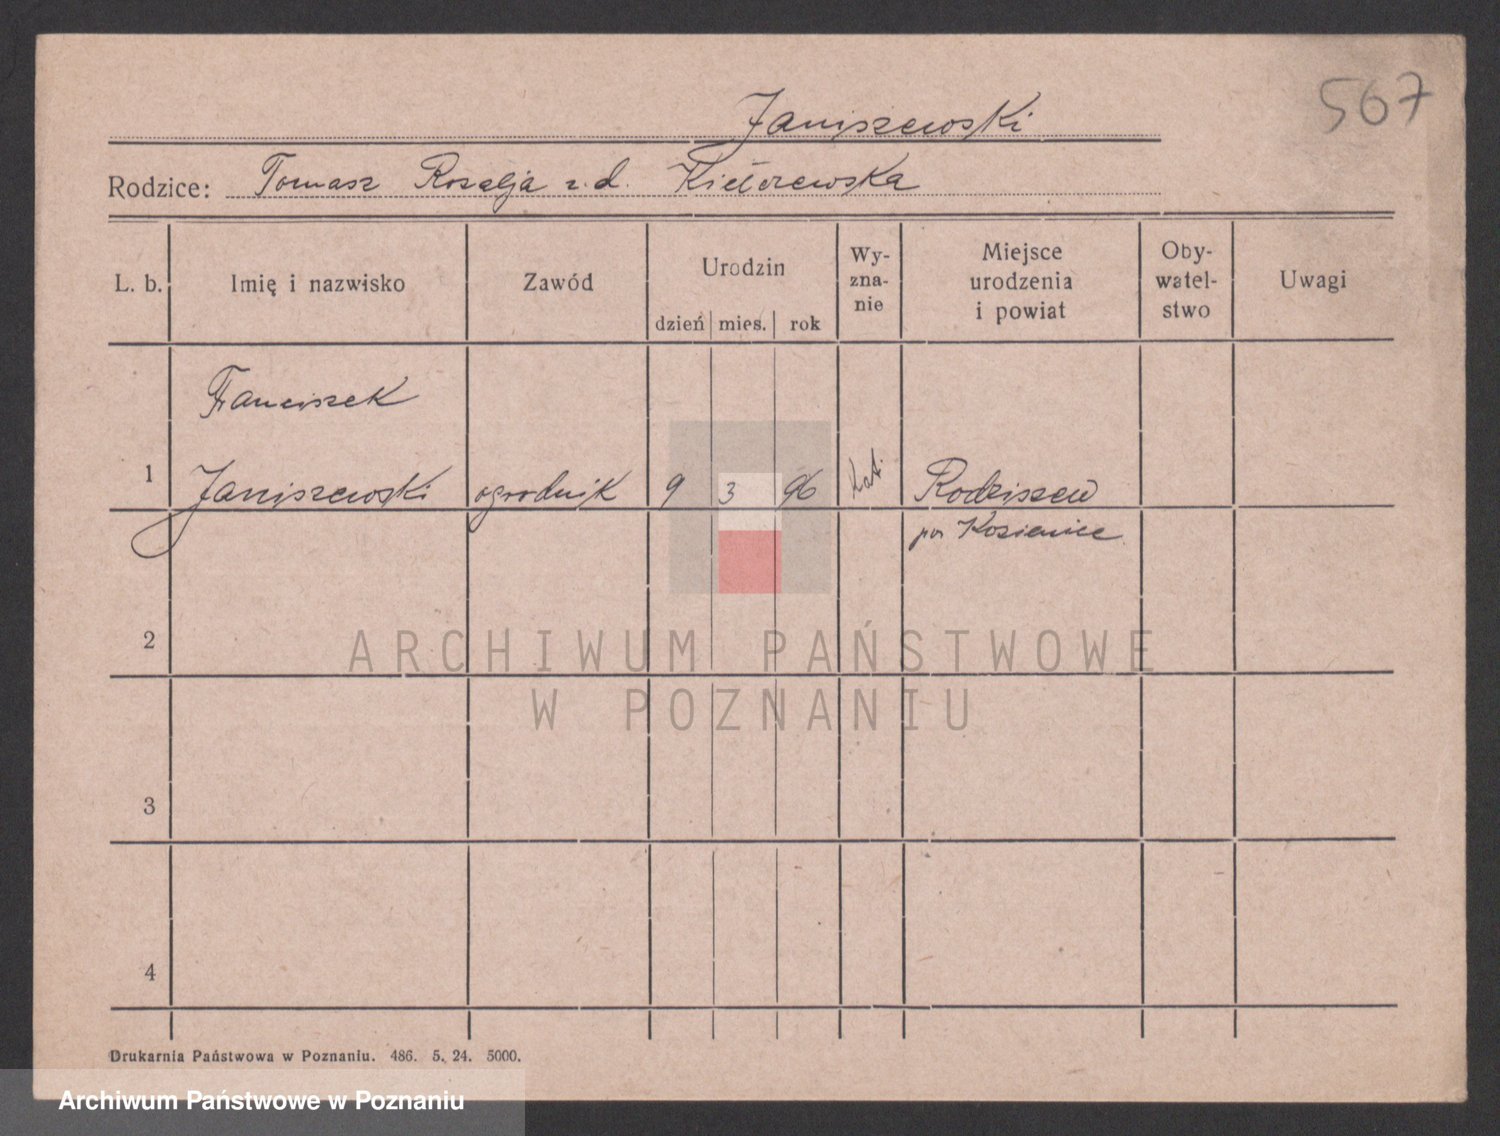 567
Janiszewski
Rodzice: Tomasz Rozalja z.d.
L. b. Imię i nazwisko Zawód Urodzin dzień mies. rok Wy-zna-nie Miejsce urodzenia i powiat Oby-watel-stwo Uwagi
Franciszek
1 Janiszewski ogrodnik 9 3 96 kat. Rodziszew
pow Kozienice
2
ARCHIWUM PAŃSTWOWE
W POZNANIU
3
4
Drukarnia Państwowa w Poznaniu. 486. 5. 24. 5000.
Archiwum Państwowe w Poznaniu